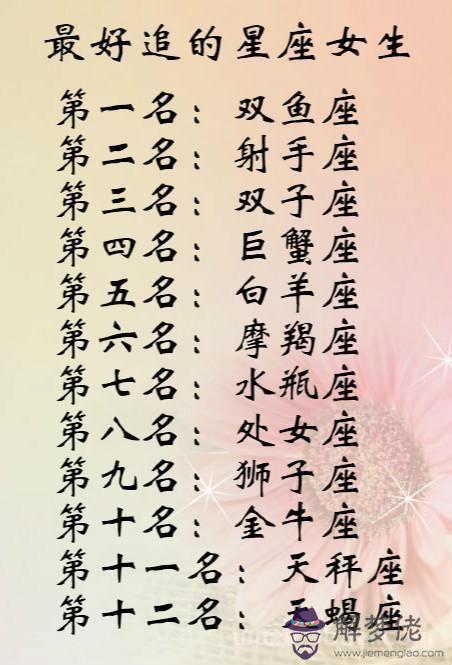 最好追的星座女生
第一名：双鱼座
第二名：射手座
第三名：双子座
第四名：巨蟹座
第五名：白羊座
第六名：摩羯座
第七名：水瓶座
第八名：处女座
第九名：狮子座
第十名：金牛座
第十一名：天秤座
第十二名：天蝎座
解梦佬
www.jiemenglao.com